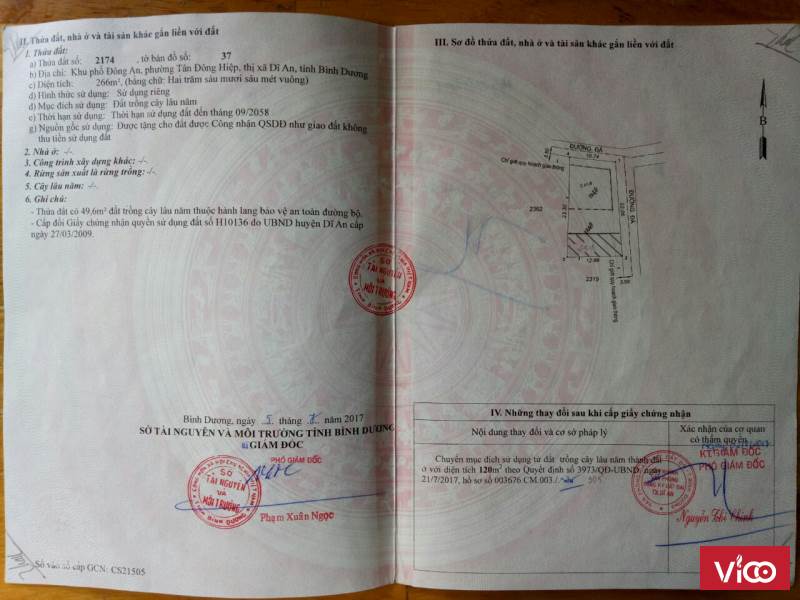 II. Thửa đất, nhà ở và tài sản khác gắn liền với đất
1. Thửa đất:
a) Thửa đất số: 2174 , tờ bản đồ số: 37
b) Địa chỉ: Khu phố Đông An, phường Tân Đông Hiệp, thị xã Dĩ An, tỉnh Bình Dương
c) Diện tích: 266m², (bằng chữ: Hai trăm sáu mươi sáu mét vuông)
d) Hình thức sử dụng: Sử dụng riêng
đ) Mục đích sử dụng: Đất trồng cây lâu năm
e) Thời hạn sử dụng: Thời hạn sử dụng đất đến tháng 09/2058
g) Nguồn gốc sử dụng: Được tặng cho đất được Công nhận QSDĐ như giao đất không
thu tiền sử dụng đất
2. Nhà ở: -/-
3. Công trình xây dựng khác: -/-
4. Rừng sản xuất là rừng trồng: -/-
5. Cây lâu năm: -/-
6. Ghi chú:
- Thửa đất có 49,6m² đất trồng cây lâu năm thuộc hành lang bảo vệ an toàn đường bộ.
- Cấp đổi Giấy chứng nhận quyền sử dụng đất số H10136 do UBND huyện Dĩ An cấp
ngày 27/03/2009.
SỞ
TÀI NGUYÊN
VÀ
MÔI TRƯỜNG
Bình Dương, ngày 5 tháng 8 2017
SỞ TÀI NGUYÊN VÀ MÔI TRƯỜNG TỈNH BÌNH DƯƠNG
GIÁM ĐỐC
PHÓ GIÁM ĐỐC
SỞ
TÀI NGUYÊN
VÀ
MÔI TRƯỜNG
Phạm Xuân Ngọc
Số vào sổ cấp GCN: CS21505
III. Sơ đồ thửa đất, nhà ở và tài sản khác gắn liền với đất
B
ĐƯỜNG ĐÁ
Chỉ giới quy hoạch giao thông
2362
ĐƯỜNG ĐÁ
2319
IV. Những thay đổi sau khi cấp giấy chứng nhận
Nội dung thay đổi và cơ sở pháp lý
Xác nhận của cơ quan
có thẩm quyền
Chuyển mục đích sử dụng từ đất trồng cây lâu năm thành đất
ở với diện tích 120m² theo Quyết định số 3973/QĐ-UBND, ngày
21/7/2017, hồ sơ số 003676 CM.003./
KT.GIÁM ĐỐC
PHÓ GIÁM ĐỐC
Nguyễn Thị Chinh
ViCO